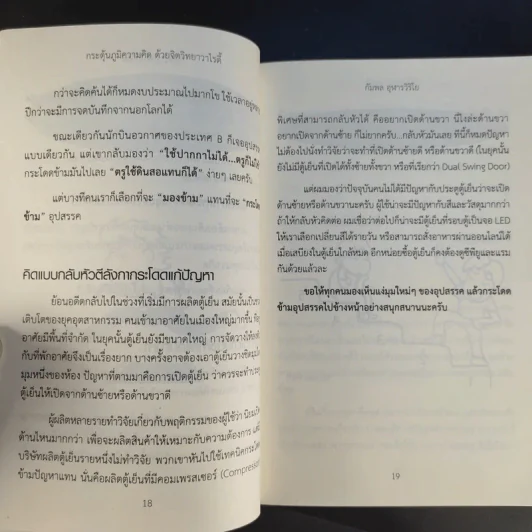 กระตุ้นภูมิความคิด ด้วยจิตวิทยาวาไรตี้
กว่าจะคิดค้นได้ก็หมดงบประมาณไปมากโข ใช้เวลาอยู่
ปีกว่าจะมีการจดบันทึกจากนอกโลกได้
ขณะเดียวกันนักบินอวกาศของประเทศ B ก็เจออุปสรรค
แบบเดียวกัน แต่เขากลับมองว่า "ใช้ปากกาไม่ได้...ตรูก็ไม่ใช้
กระโดดข้ามมันไปเลย "ตรูใช้ดินสอแทนก็ได้" ง่ายๆ เลยครับ
แต่บางทีคนเราก็เลือกที่จะ "มองข้าม" แทนที่จะ "กระโดด
ข้าม" อุปสรรค
คิดแบบกลับหัวตีลังกากระโดดแก้ปัญหา
ย้อนอดีตกลับไปในช่วงที่เริ่มมีการผลิตตู้เย็น สมัยนั้นเป็น
เติบโตของยุคอุตสาหกรรม คนเข้ามาอาศัยในเมืองใหญ่มากขึ้น
อาศัยมีพื้นที่จำกัด ในยุคนั้นตู้เย็นยังมีขนาดใหญ่ การจัดวางให้
กับที่พักอาศัยจึงเป็นเรื่องยาก บางครั้งอาจต้องเอาตู้เย็นวางชิดมุม
มุมหนึ่งของห้อง ปัญหาที่ตามมาคือการเปิดตู้เย็น ว่าควรจะทำ
ตู้เย็นให้เปิดจากด้านซ้ายหรือด้านขวาดี
ผู้ผลิตหลายรายทำวิจัยเกี่ยวกับพฤติกรรมของผู้ใช้ว่า นิยม
ด้านไหนมากกว่า เพื่อจะผลิตสินค้าให้เหมาะกับความต้องการ แต่
บริษัทผลิตตู้เย็นรายหนึ่งไม่ทำวิจัย พวกเขาหันไปใช้เทคนิคกระโดด
ข้ามปัญหาแทน นั่นคือผลิตตู้เย็นที่มีคอมเพรสเซอร์ (Compressor
18
กัมพล อุฬารวิริโย
พิเศษที่สามารถกลับหัวได้ คืออยากเปิดด้านขวา นี่ไงล่ะด้านขวา
อยากเปิดจากด้านซ้าย ก็ไม่ยากครับ...กลับหัวมันเลย ทีนี้ก็หมดปัญหา
ไม่ต้องไปนั่งทำวิจัยว่าจะทำที่เปิดด้านซ้ายดี หรือด้านขวาดี (ในยุคนั้น
ยังไม่มีตู้เย็นที่เปิดได้ทั้งซ้ายทั้งขวา หรือที่เรียกว่า Dual Swing Door)
แต่ผมมองว่าปัจจุบันคนไม่ได้มีปัญหากับประตูตู้เย็นว่าจะเปิด
ด้านซ้ายหรือด้านขวานะครับ ผู้ใช้น่าจะมีปัญหากับสีและวัสดุมากกว่า
ถ้าให้กลับหัวคิดต่อ ผมเชื่อว่าต่อไปก็น่าจะมีตู้เย็นที่รอบตู้เป็นจอ LED
ให้เราเลือกเปลี่ยนสีได้รายวัน หรือสามารถสั่งอาหารผ่านออนไลน์ได้
เมื่อเสบียงในตู้เย็นใกล้หมด อีกหน่อยซื้อตู้เย็นก็คงต้องดูซีพียูและแรม
กันด้วยแล้วละ
ขอให้ทุกคนมองเห็นแง่มุมใหม่ๆ ของอุปสรรค แล้วกระโดด
ข้ามอุปสรรคไปข้างหน้าอย่างสนุกสนานนะครับ
19